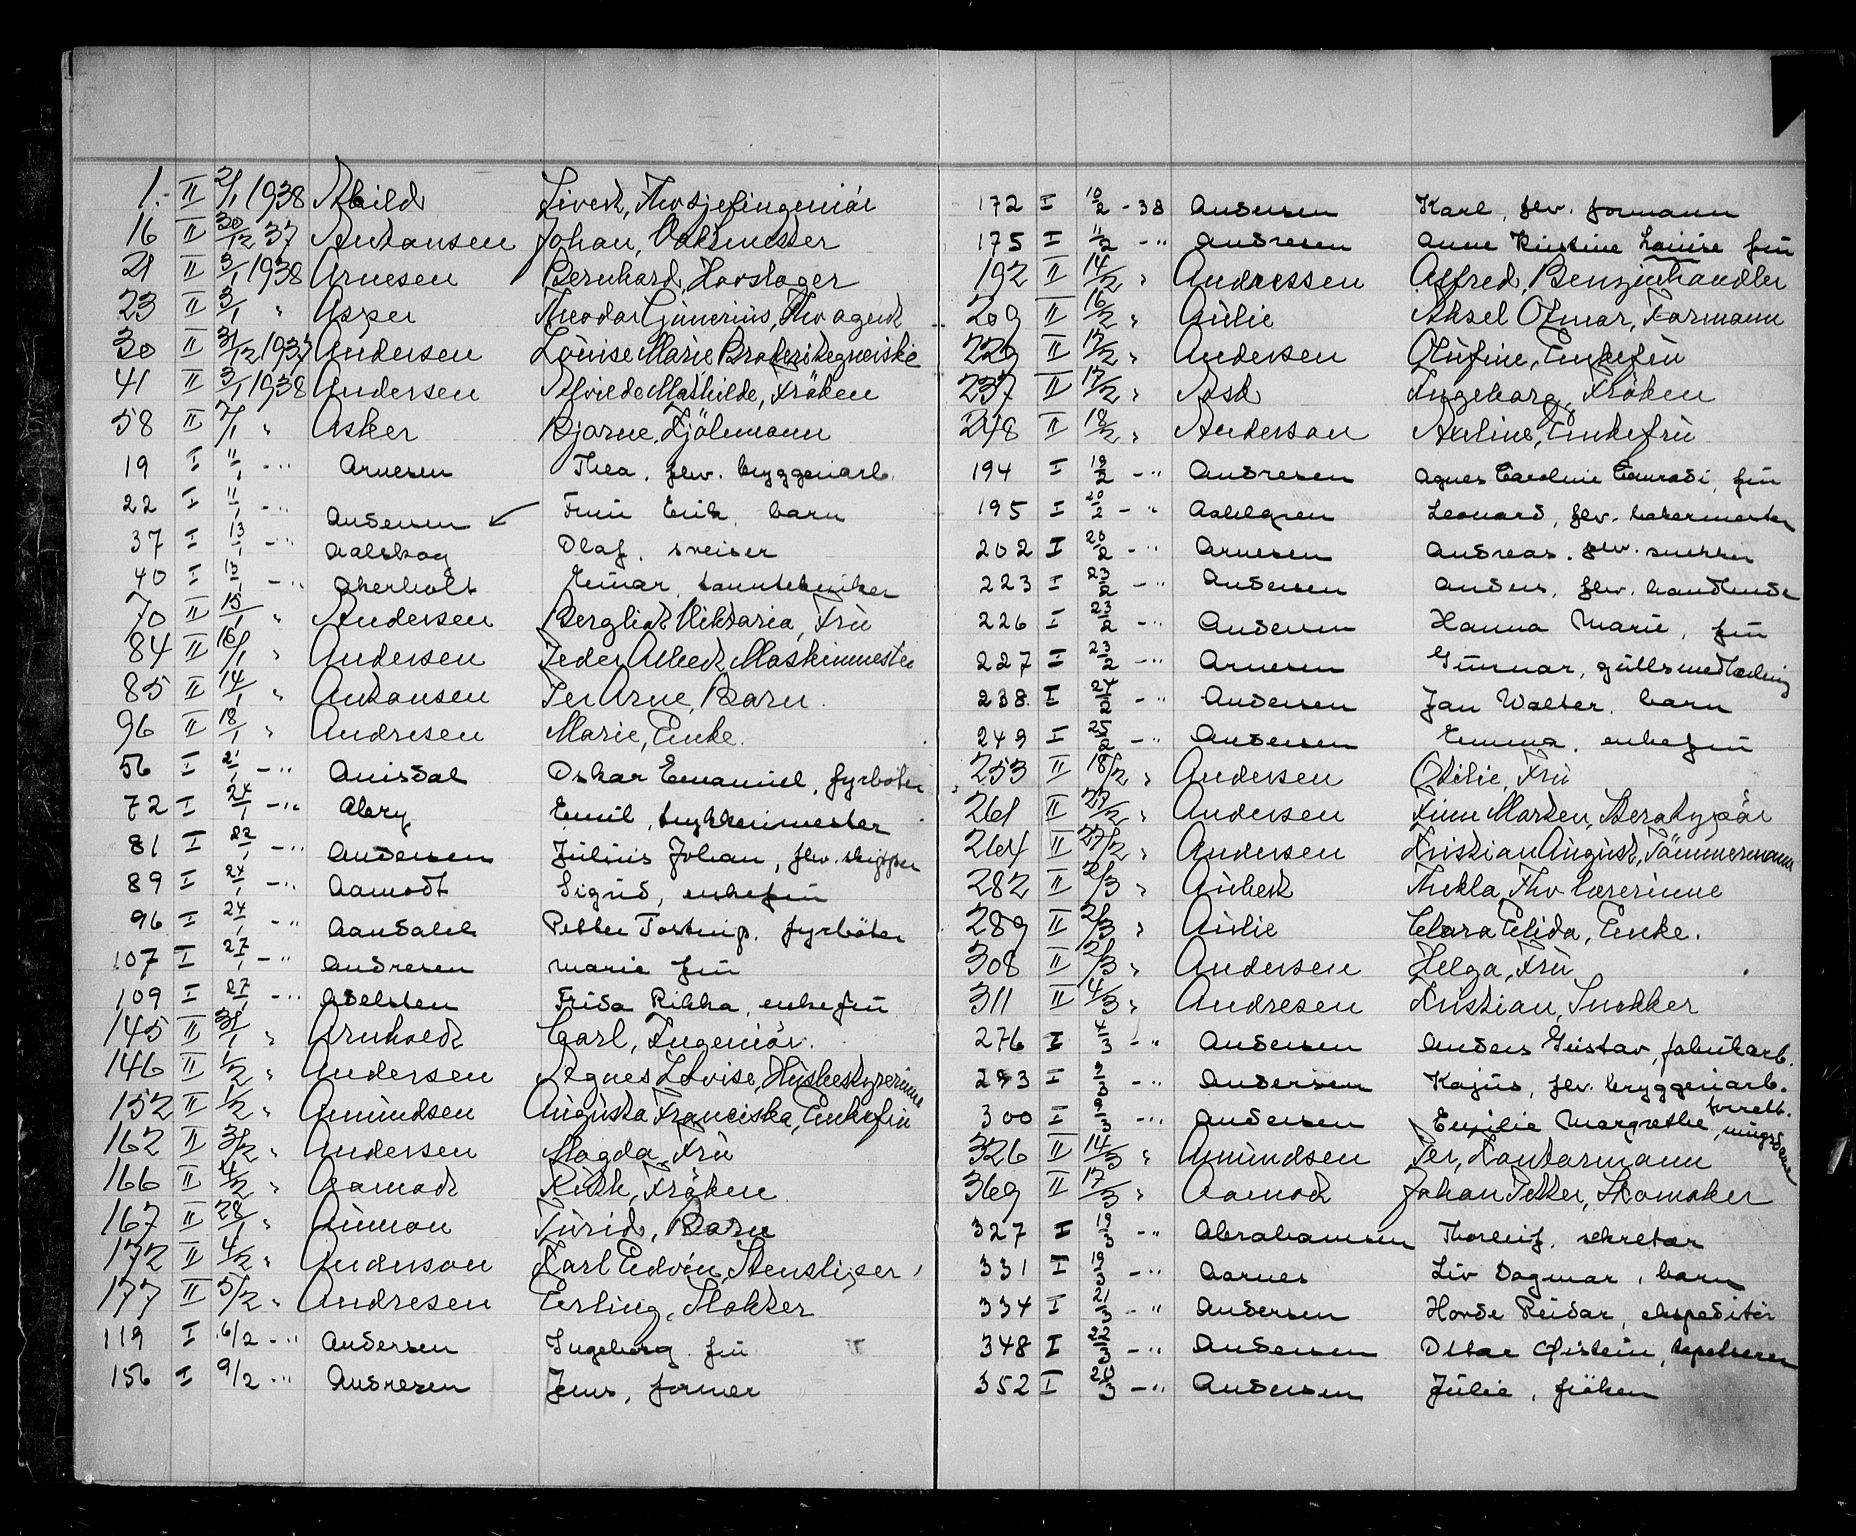 1. II 2/1 1938 Abild Sivert, Fhv sjefingeniör
16 II 30/12 37 Antonsen Johan, Vaktmester
21 II 3/1 1938 Arnesen Bernhard, Hovslager
23 II 3/1 " Asper Theodor Gunerius, Fhv agent
30 II 31/12 1937 Andersen Louise Marie
41 II 3/1 1938 Andersen Alvilde Mathilde, Fröken
58 II 7/1 " Asker Bjarne, Sjömann
19 I 11/1 -" Arnesen Thea, flv. bryggeriarb.
22 I 11/1 -" Andersen Finn Erik, barn
37 I 13/1 -" Aalskog Olaf, sveiser
40 I 13/1 -" Akerholt Einar, tanntekniker
70 II 15/1 " Andersen Bergliot Viktoria, Fru
84 II 16/1 " Andersen Peder Albert, Maskinmester
85 II 14/1 " Antonsen Per Arne, Barn
96 II 18/1 " Andresen Marie, Enke.
56 I 21/1 -" Amisdal Oskar Emanuel, fyrböter
72 I 24/1 -" Abery Emil, trykkerimester
81 I 22/1 -" Andersen Julius Johan, flv. skipper
89 I 24/1 -" Aamodt Sigrid, enkefru
96 I 24/1 -" Aandahl Petter Tostrup, fyrböter
107 I 27/1 -" Andresen Marie fru
109 I 27/1 -" Adelsten Frida Rikka, enkefru
145 II 31/1 " Arnholdt Carl, Ingeniör.
146 II 1/2 " Andersen Agnes Lovise, Husbestyrerinne
152 II 1/2 " Amundsen Augusta Franciska, Enkefru
162 II 3/2 " Andersen Magda, Fru
166 II 4/2 " Aamodt Ruth, Fröken
167 II 28/1 " Aumon Turid, Barn
172 II 4/2 " Anderson Karl Edvin, Stensliper
177 II 5/2 " Andresen Erling, Slakter
119 I 6/2 -" Andersen Ingeborg fru
156 I 9/2 -" Andresen Jens, former
172 I 10/2 -38 Andersen Karl, flv. formann
175 I 11/2 -" Andresen Anne Kirstine Louise fru
192 II 14/2 " Andressen Alfred, Benzinhandler
209 II 16/2 " Aulie Aksel Otmar, Formann
229 II 17/2 " Andersen Olufine, Enkefru
237 II 17/2 " Ask Ingeborg, Fröken
248 II 18/2 " Anderson Auline, Enkefru
194 I 19/2 -" Andresen Agnes Caroline Conradi, fru
195 I 20/2 -" Aahlgren Leonard, flv. bakermester
202 I 20/2 -" Arnesen Andreas, flv. snekker
223 I 23/2 -" Andersen Anders, flv. handlende
226 I 23/2 -" Andersen Hanna Marie, fru
227 I 23/2 -" Arnesen Gunnar, gullsmedlærling
238 I 24/2 -" Andersen Jan Walter, barn
249 I 25/2 -" Andersen Emma, enkefru
253 II 18/2 " Andersen Otilie, Fru
261 II 27/2 " Andersen Finn Morten,
264 II 27/2 " Andersen Kristian August, Tömmermann
282 II 2/3 " Aubert Thekla, Fhv lærerinne
289 II 2/3 " Aulie Clara Elida, Enke.
308 II 2/3 " Andersen Helga, Fru
311 II 4/3 " Andresen Kristian, Snekker
276 I 4/3 -" Andersen Anders Gustav, fabrikarb.
293 I 9/3 -" Andersen Kajus, flv. bryggeriarb.
300 I 9/3 -" Andersen Emilie Margrethe, forretningsdame
326 II 14/3 " Amundsen Per, Kontormann
369 II 17/3 " Aamodt Johan Petter, Skomaker
327 I 19/3 -" Abrahamsen Thorleif, sekretær
331 I 19/3 -" Aarnes Liv Dagmar, barn
334 I 21/3 -" Andersen Horde Reidar, ekspeditör
348 I 22/3 -" Andersen Ottar Øistein, tapetserer
352 I 23/3 -" Andersen Julie, fröken